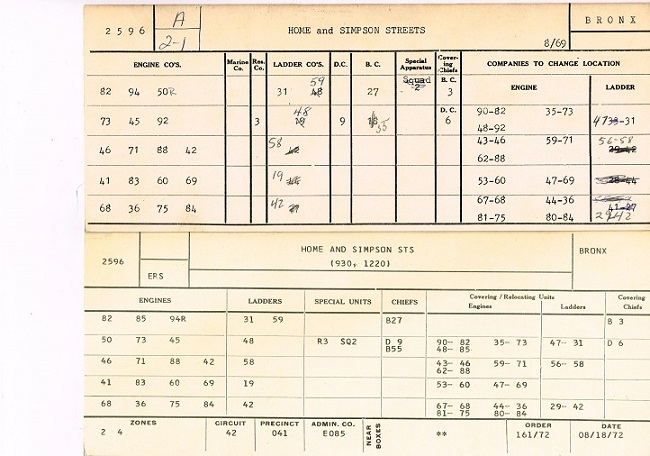 2596 A HOME and SIMPSON STREETS BRONX
2-1 8/69
ENGINE CO'S. Marine Co. Res. Co. LADDER CO'S. D.C. B. C. Special Apparatus Covering Chiefs COMPANIES TO CHANGE LOCATION
ENGINE LADDER
59 Squad B. C.
82 94 50R 31 48 27 2 3
48 D. C. 90-82 35-73
73 45 92 3 19 9 18 55 6 48-92 47 33-31
46 71 88 42 58 43-46 59-71 56-58
62-88
41 83 60 69 19 53-60 47-69
68 36 75 84 42 67-68 44-36
81-75 80-84 29-42
2596 HOME AND SIMPSON STS BRONX
(930, 1220)
ERS
ENGINES LADDERS SPECIAL UNITS CHIEFS Covering / Relocating Units Covering Chiefs
Engines Ladders
82 85 94R 31 59 B27 B 3
50 73 45 48 R3 SQ2 D 9 90- 82 35- 73 47- 31 D 6
B55 48- 85
46 71 88 42 58 43- 46 59- 71 56- 58
62- 88
41 83 60 69 19 53- 60 47- 69
68 36 75 84 42 67- 68 44- 36 29- 42
81- 75 80- 84
ZONES CIRCUIT PRECINCT ADMIN. CO. NEAR BOXES ORDER DATE
2 4 42 041 E085 ** 161/72 08/18/72